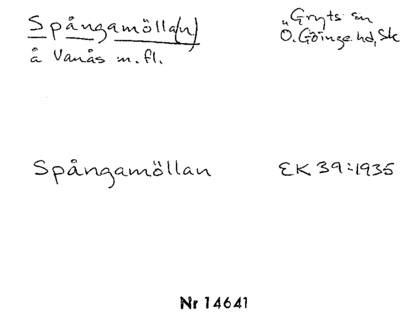 Spångamölla(n)
å Vanås m.fl.
„Gryts sn
Ö. Göinge hd, Sk
Spångamöllan
EK 39:1935
Nr 14641